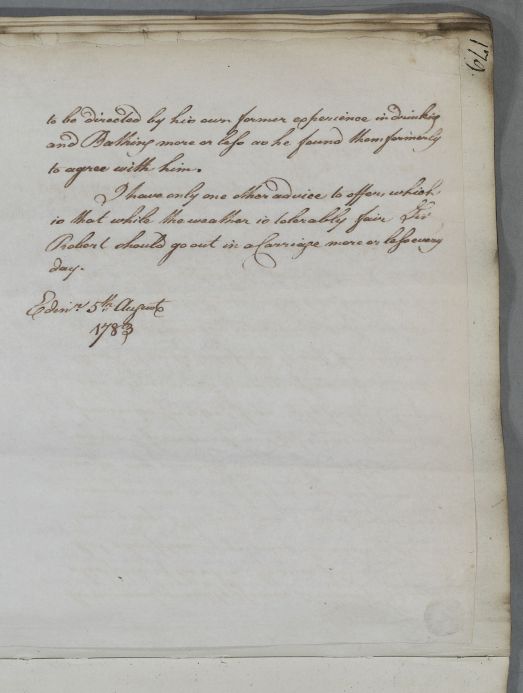 179.
to be directed by his own former experience in drinking
and Bathing more or less as he found them formerly
to agree with him.
I have only one other advice to offer, which
is that while the weather is tolerably fair Sir
Robert should go out in a Carriage more or less every
day.
Edinr. 5th. August
1783